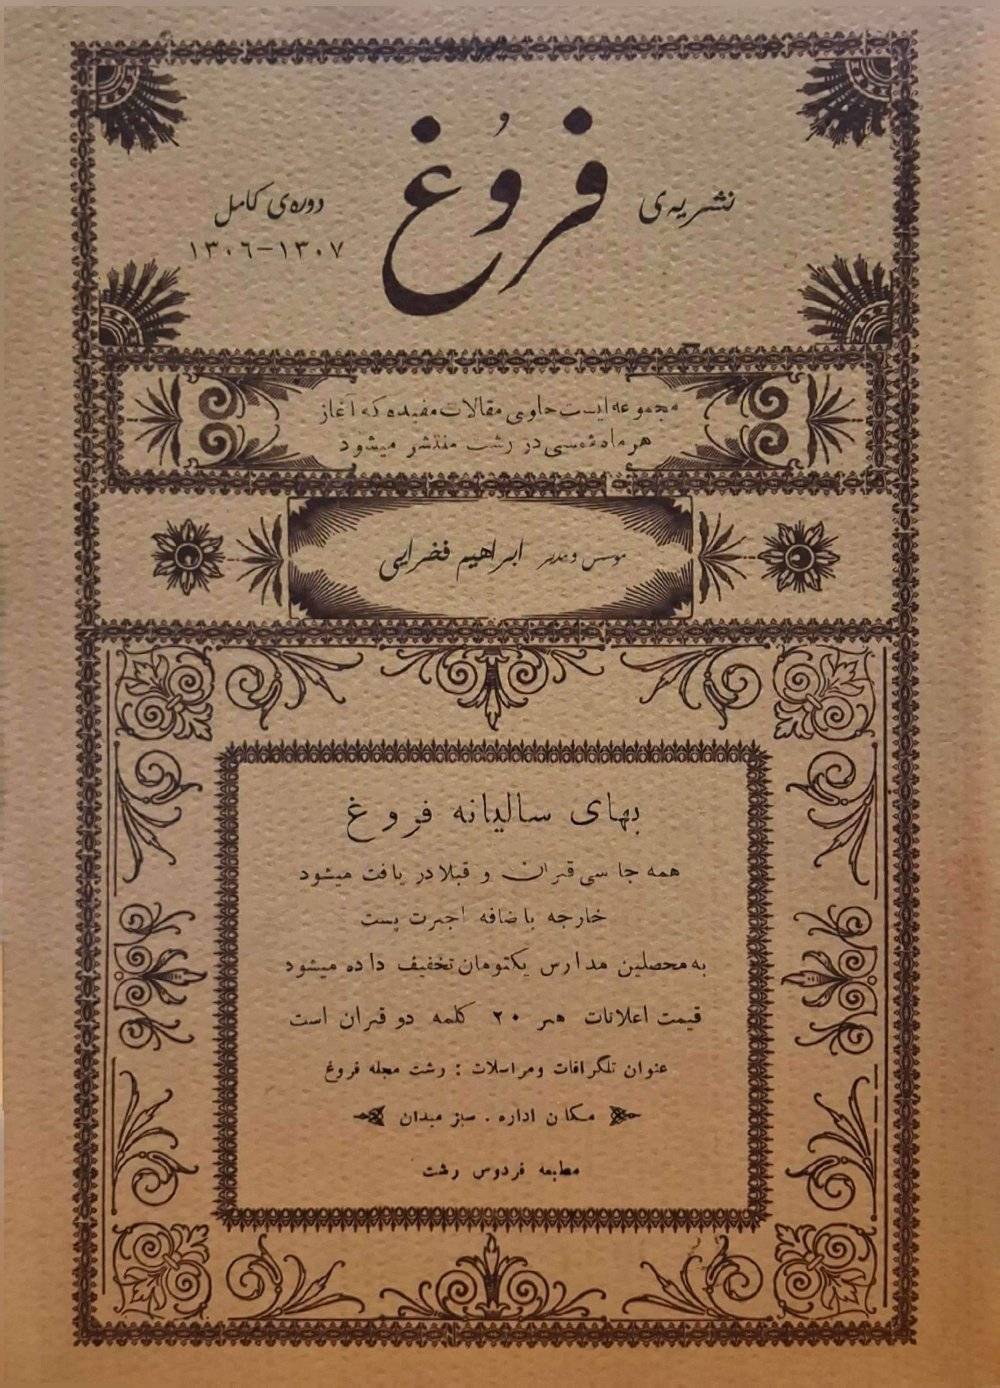 نشریه‌ی فروُغ دوره‌ی کامل
۱۳۰۶-۱۳۰۷
مجموعه ایست حاوی مقالات مفیده که آغاز
هر ماه شمسی در رشت منتشر میشود
موسس و مدیر ابراهیم فخرایی
بهای سالیانه فروغ
همه جا سی قران و قبلا دریافت میشود
خارجه باضافه اجرت پست
به محصلین مدارس یکتومان تخفیف داده میشود
قیمت اعلانات هر ۲۰ کلمه دو قران است
عنوان تلگرافات ومراسلات : رشت مجله فروغ
مکان اداره . سبز میدان
مطبعه فردوس رشت